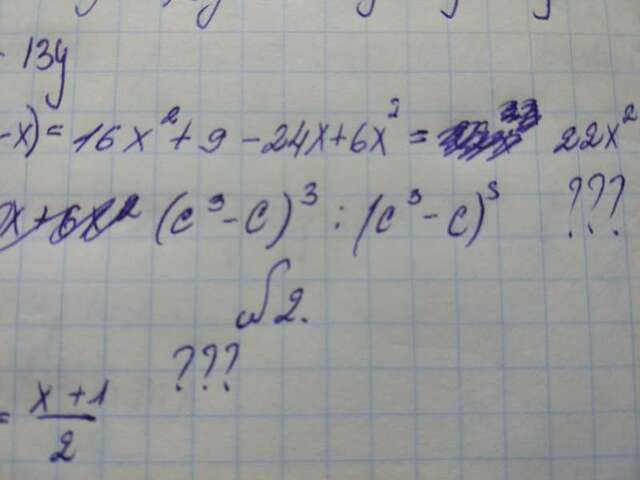 - 13y
-x) = 16x² + 9 - 24x + 6x² = 22x²
x + 6x² (c³ - c)³ : (c³ - c)³ ???
№2.
???
= x + 1
2